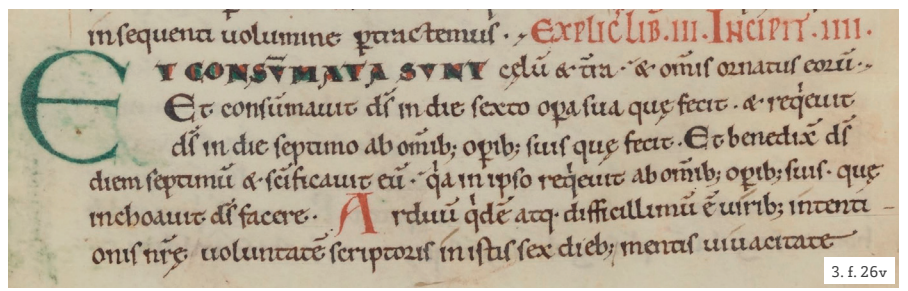 insequenti uolumine ptractemus. EXPLIC LIB. III. INCIPIT. IIII.
ET CONSVMATA SVNT cęlū & t̄ra. & om̄is ornatus eorū.
Et consūmauit dš in die sexto opa sua quę fecit. & reqͥeuit
dš in die septimo ab om̄ib; opib; suis quę fecit. Et benedix̄ dš
diem septimū & sc̄ificauit eū. qͥa in ipso reqͥeuit ab om̄ib; opib; suis. quę
inchoauit dš facere. Arduū qͥdē atq. difficillimū ē uirib; intenti
onis nrę uoluntatē scriptoris in istis sex dieb; mentis uiuacitate
3. f. 26v